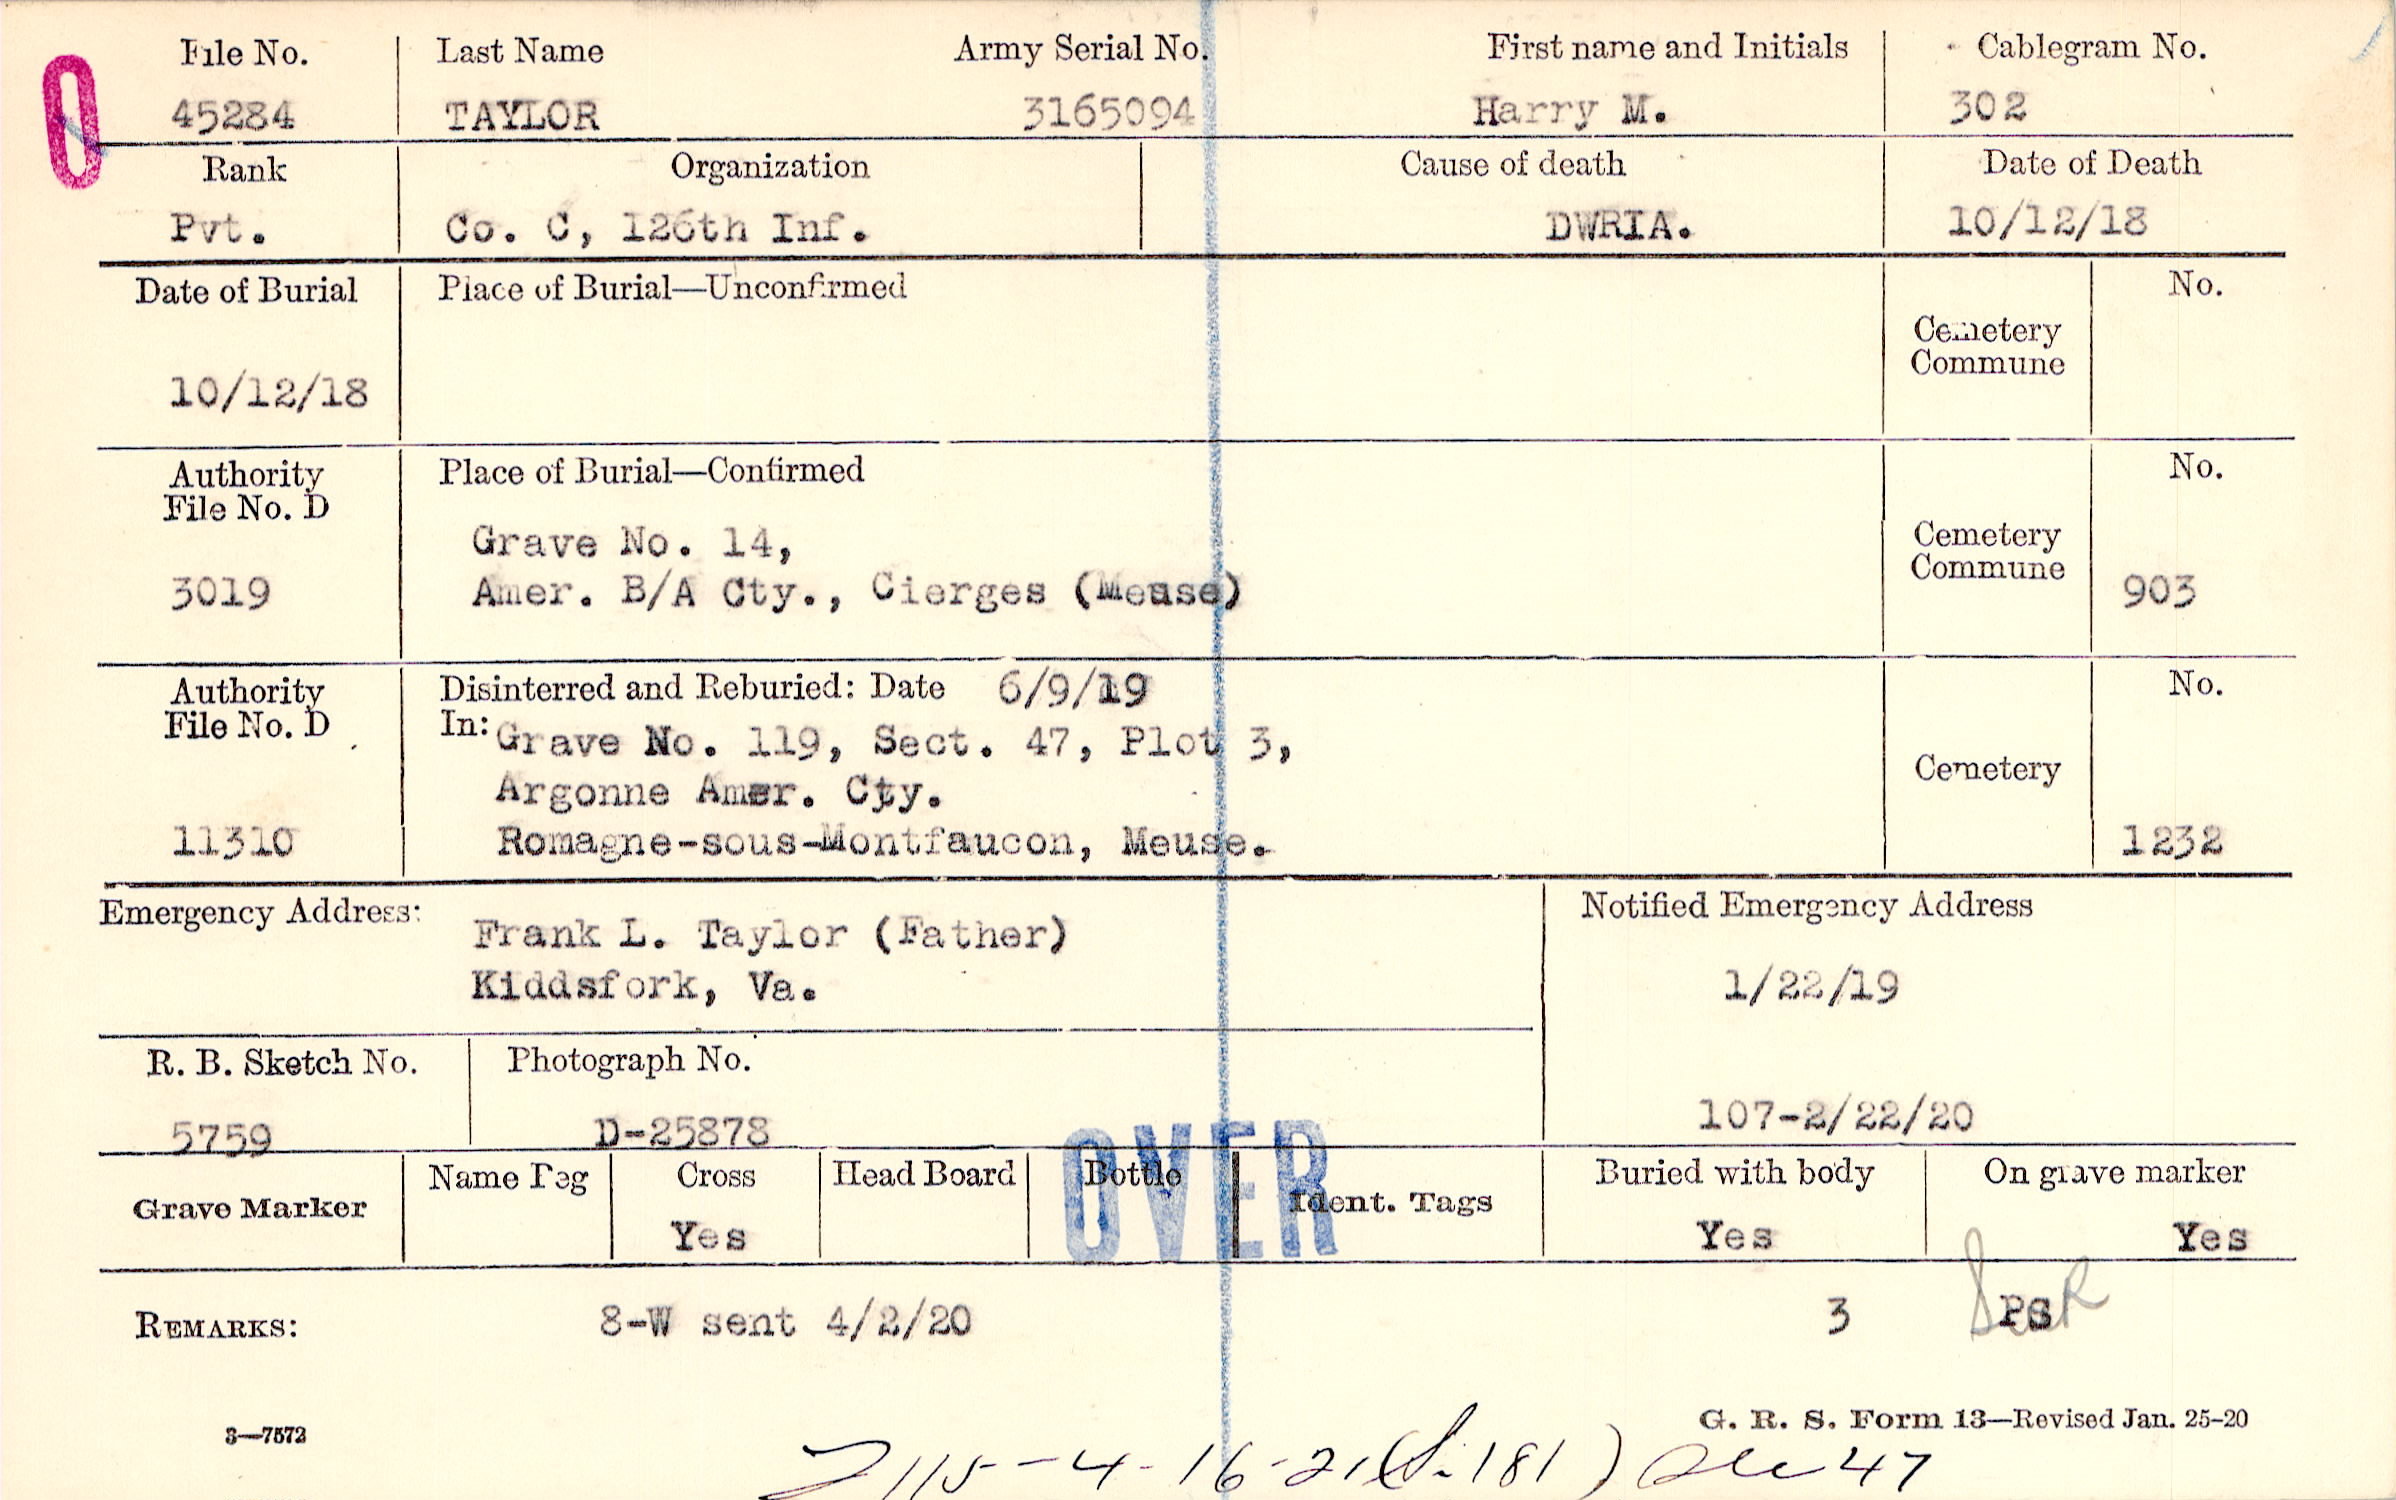 File No. Last Name Army Serial No. First name and Initials Cablegram No.
45284 TAYLOR 3165094 Harry M. 302
Rank Organization Cause of death Date of Death
Pvt. Co. C, 126th Inf. DWRIA. 10/12/18
Date of Burial Place of Burial—Unconfirmed No.
Cemetery
Commune
10/12/18
Authority Place of Burial—Confirmed No.
File No. D
Grave No. 14, Cemetery
Commune
3019 Amer. B/A Cty., Cierges (Meuse) 903
Authority Disinterred and Reburied: Date 6/9/19 No.
File No. D In: Grave No. 119, Sect. 47, Plot 3,
Argonne Amer. Cty. Cemetery
11310 Romagne-sous-Montfaucon, Meuse. 1232
Emergency Address: Notified Emergency Address
Frank L. Taylor (Father)
Kiddsfork, Va. 1/22/19
R. B. Sketch No. Photograph No.
5759 D-25878 107-2/22/20
OVER
Grave Marker Name Peg Cross Head Board Bottle Ident. Tags Buried with body On grave marker
Yes Yes Yes
REMARKS: 8-W sent 4/2/20 3 PS
3—7572 G. R. S. Form 13—Revised Jan. 25-20
115--4-16-21 (S.181) Sec 47